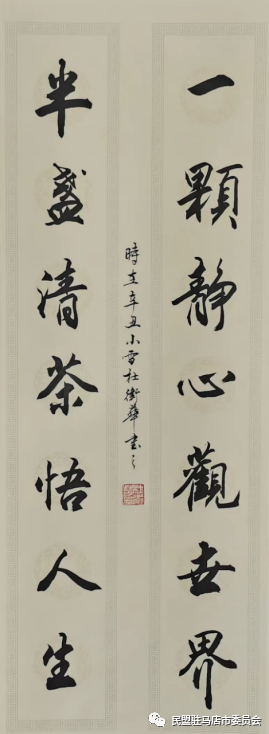 一顆靜心觀世界
半盞清茶悟人生
時在辛丑小雪杜衛華書之
民盟驻马店市委员会